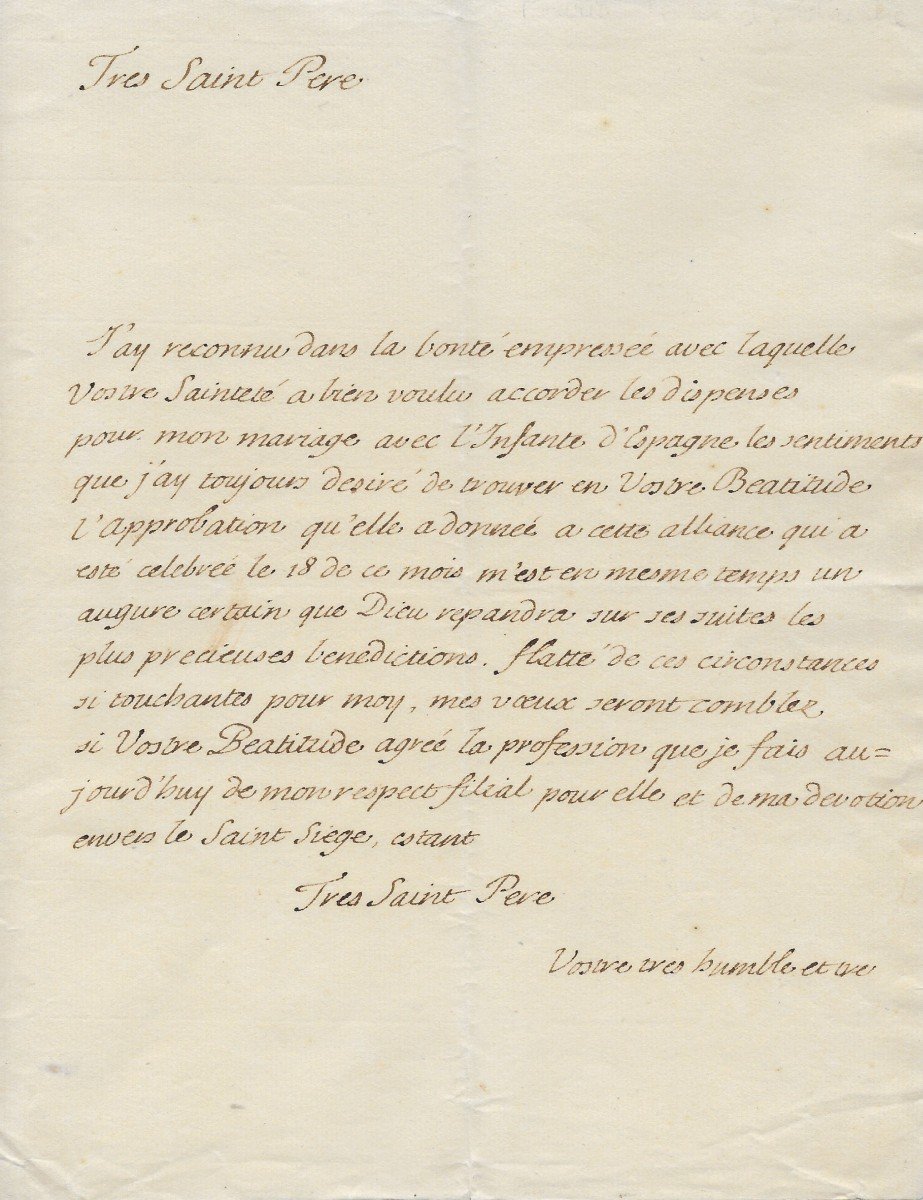 Tres Saint Pere
J'ay reconnu dans la bonté empresseé avec laquelle
Vostre Sainteté a bien voulu accorder les dispenses
pour mon mariage avec l'Infante d'Espagne les sentiments
que j'ay toujours desiré de trouver en Vostre Beatitude
l'approbation qu'elle a donneé a cette alliance qui a
esté celebreé le 18 de ce mois m'est en mesme temps un
augure certain que Dieu repandra sur ses suites les
plus precieuses benedictions. flatté de ces circonstances
si touchantes pour moy, mes vœux seront comblez
si Vostre Beatitude agreé la profession que je fais au=
jourd'huy de mon respect filial pour elle et de ma devotion
envers le Saint Siege, estant
Tres Saint Pere
Vostre tres humble et tre